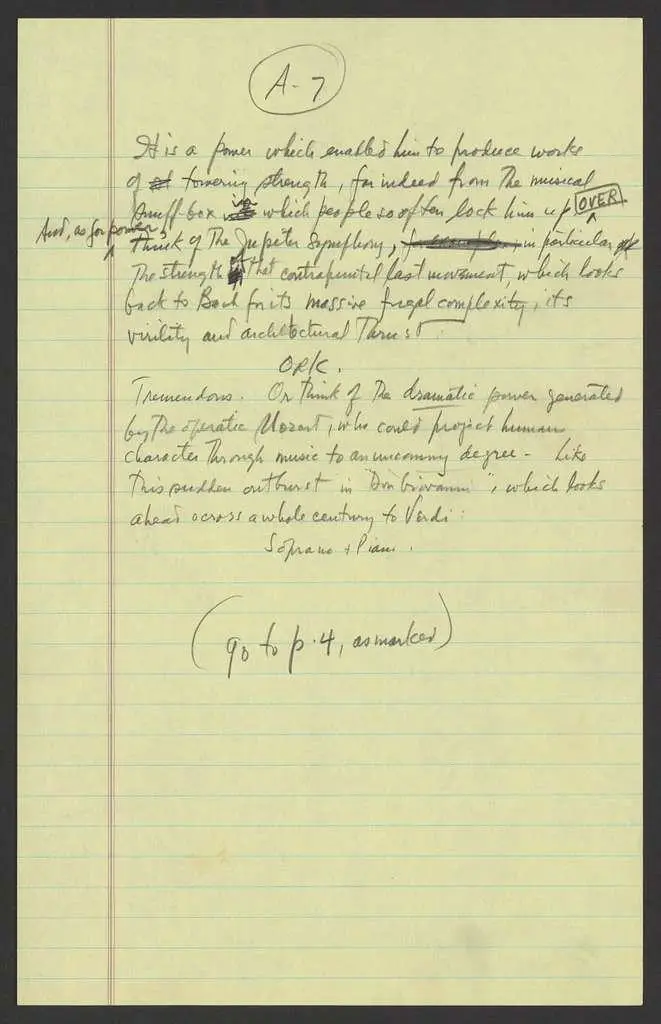 A-7
It is a power which enabled him to produce works
of towering strength, far indeed from the musical
snuff-box in which people so often lock him up. OVER
And, as for power,
Think of the Jupiter Symphony, in particular of
the strength of that contrapuntal last movement, which looks
back to Bach for its massive fugal complexity, its
virility and architectural thrust.
ORK.
Tremendous. Or think of the dramatic power generated
by the operatic Mozart, who could project human
character through music to an uncanny degree - Like
this sudden outburst in "Don Giovanni", which looks
ahead across a whole century to Verdi:
Soprano + Piano.
(go to p. 4, as marked)